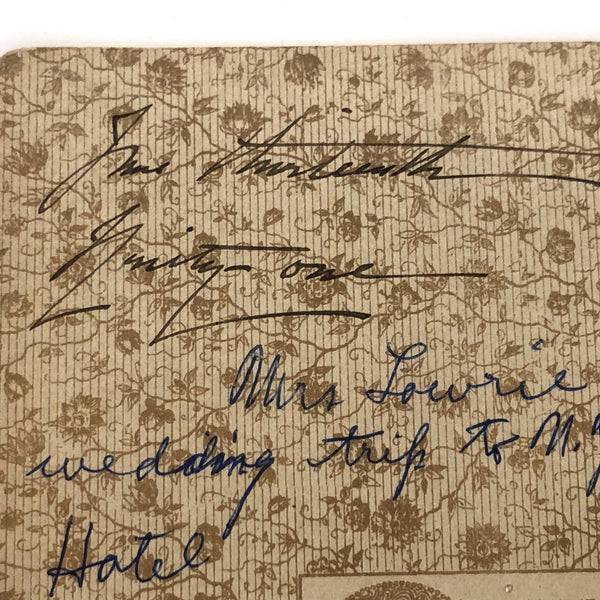 June thirteenth
Ninety-one
Mrs Lowrie
wedding trip to N.Y
Hotel